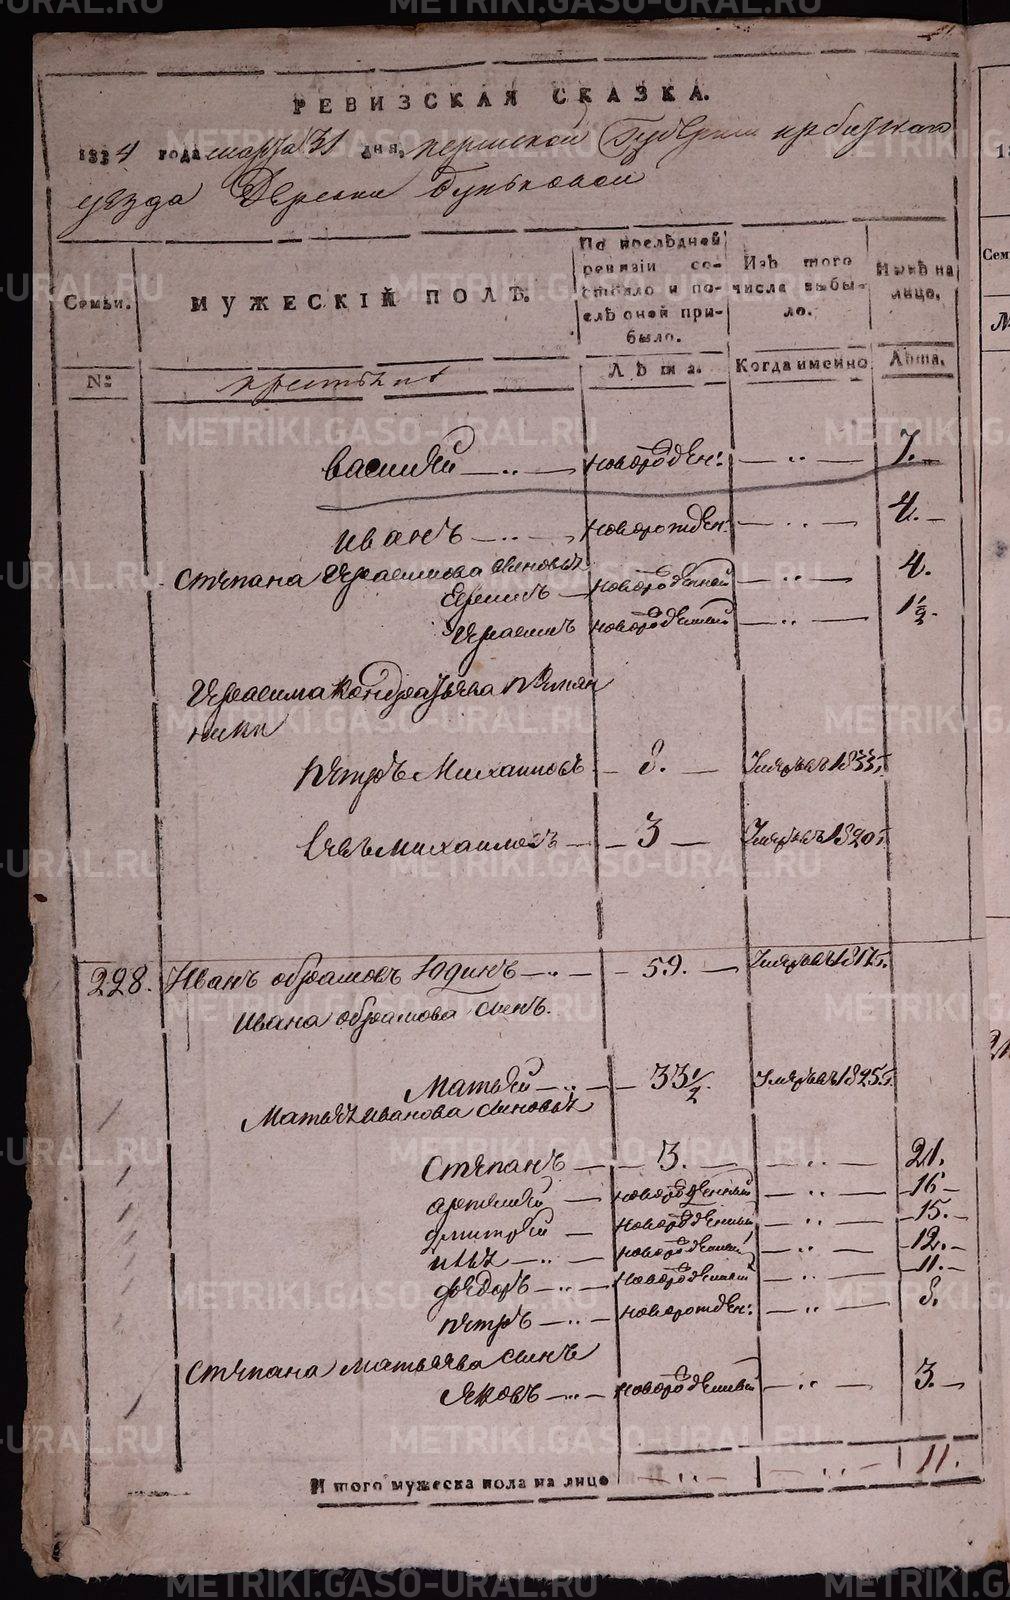 РЕВИЗСКАЯ СКАЗКА.
1834 года марта 31 дня, пермской Губернии ирбитскаго
уезда Деревни буньковой
Семьи. МУЖЕСКІЙ ПОЛЪ. По послѣдней ревизіи состояло и послѣ оной прибыло. Изъ того числа выбыло. Нынѣ на лицо.
№ крестьяне Лѣта. Когда именно Лѣта.
василей новорожден: 7.
иванъ новорожден: 4.
степана Герасимова сыновья
Ефимъ новорожденной 4.
Герасимъ новорожденный 1 1/2
Герасима Кондратьева племян
ники
петръ Михаиловъ 8. Умре въ 1833г.
михаиловъ 3 Умре въ 1820г.
228. Иванъ обрамовъ Юдинъ 59. Умре въ 1817г.
Ивана обрамова сынъ.
Матвей 33 1/2. Умре въ 1825г.
Матвея иванова сыновья
степанъ 3. 21.
артемей новорожденный 16
дмитрей новорожденный 15.
илья новорожденый 12.
федоръ новорожденый 11.
петръ новорожден: 8.
степана матвеева сынъ
яковъ новорожденый 3.
Итого мужеска пола на лицо 11.
METRIKI.GASO-URAL.RU